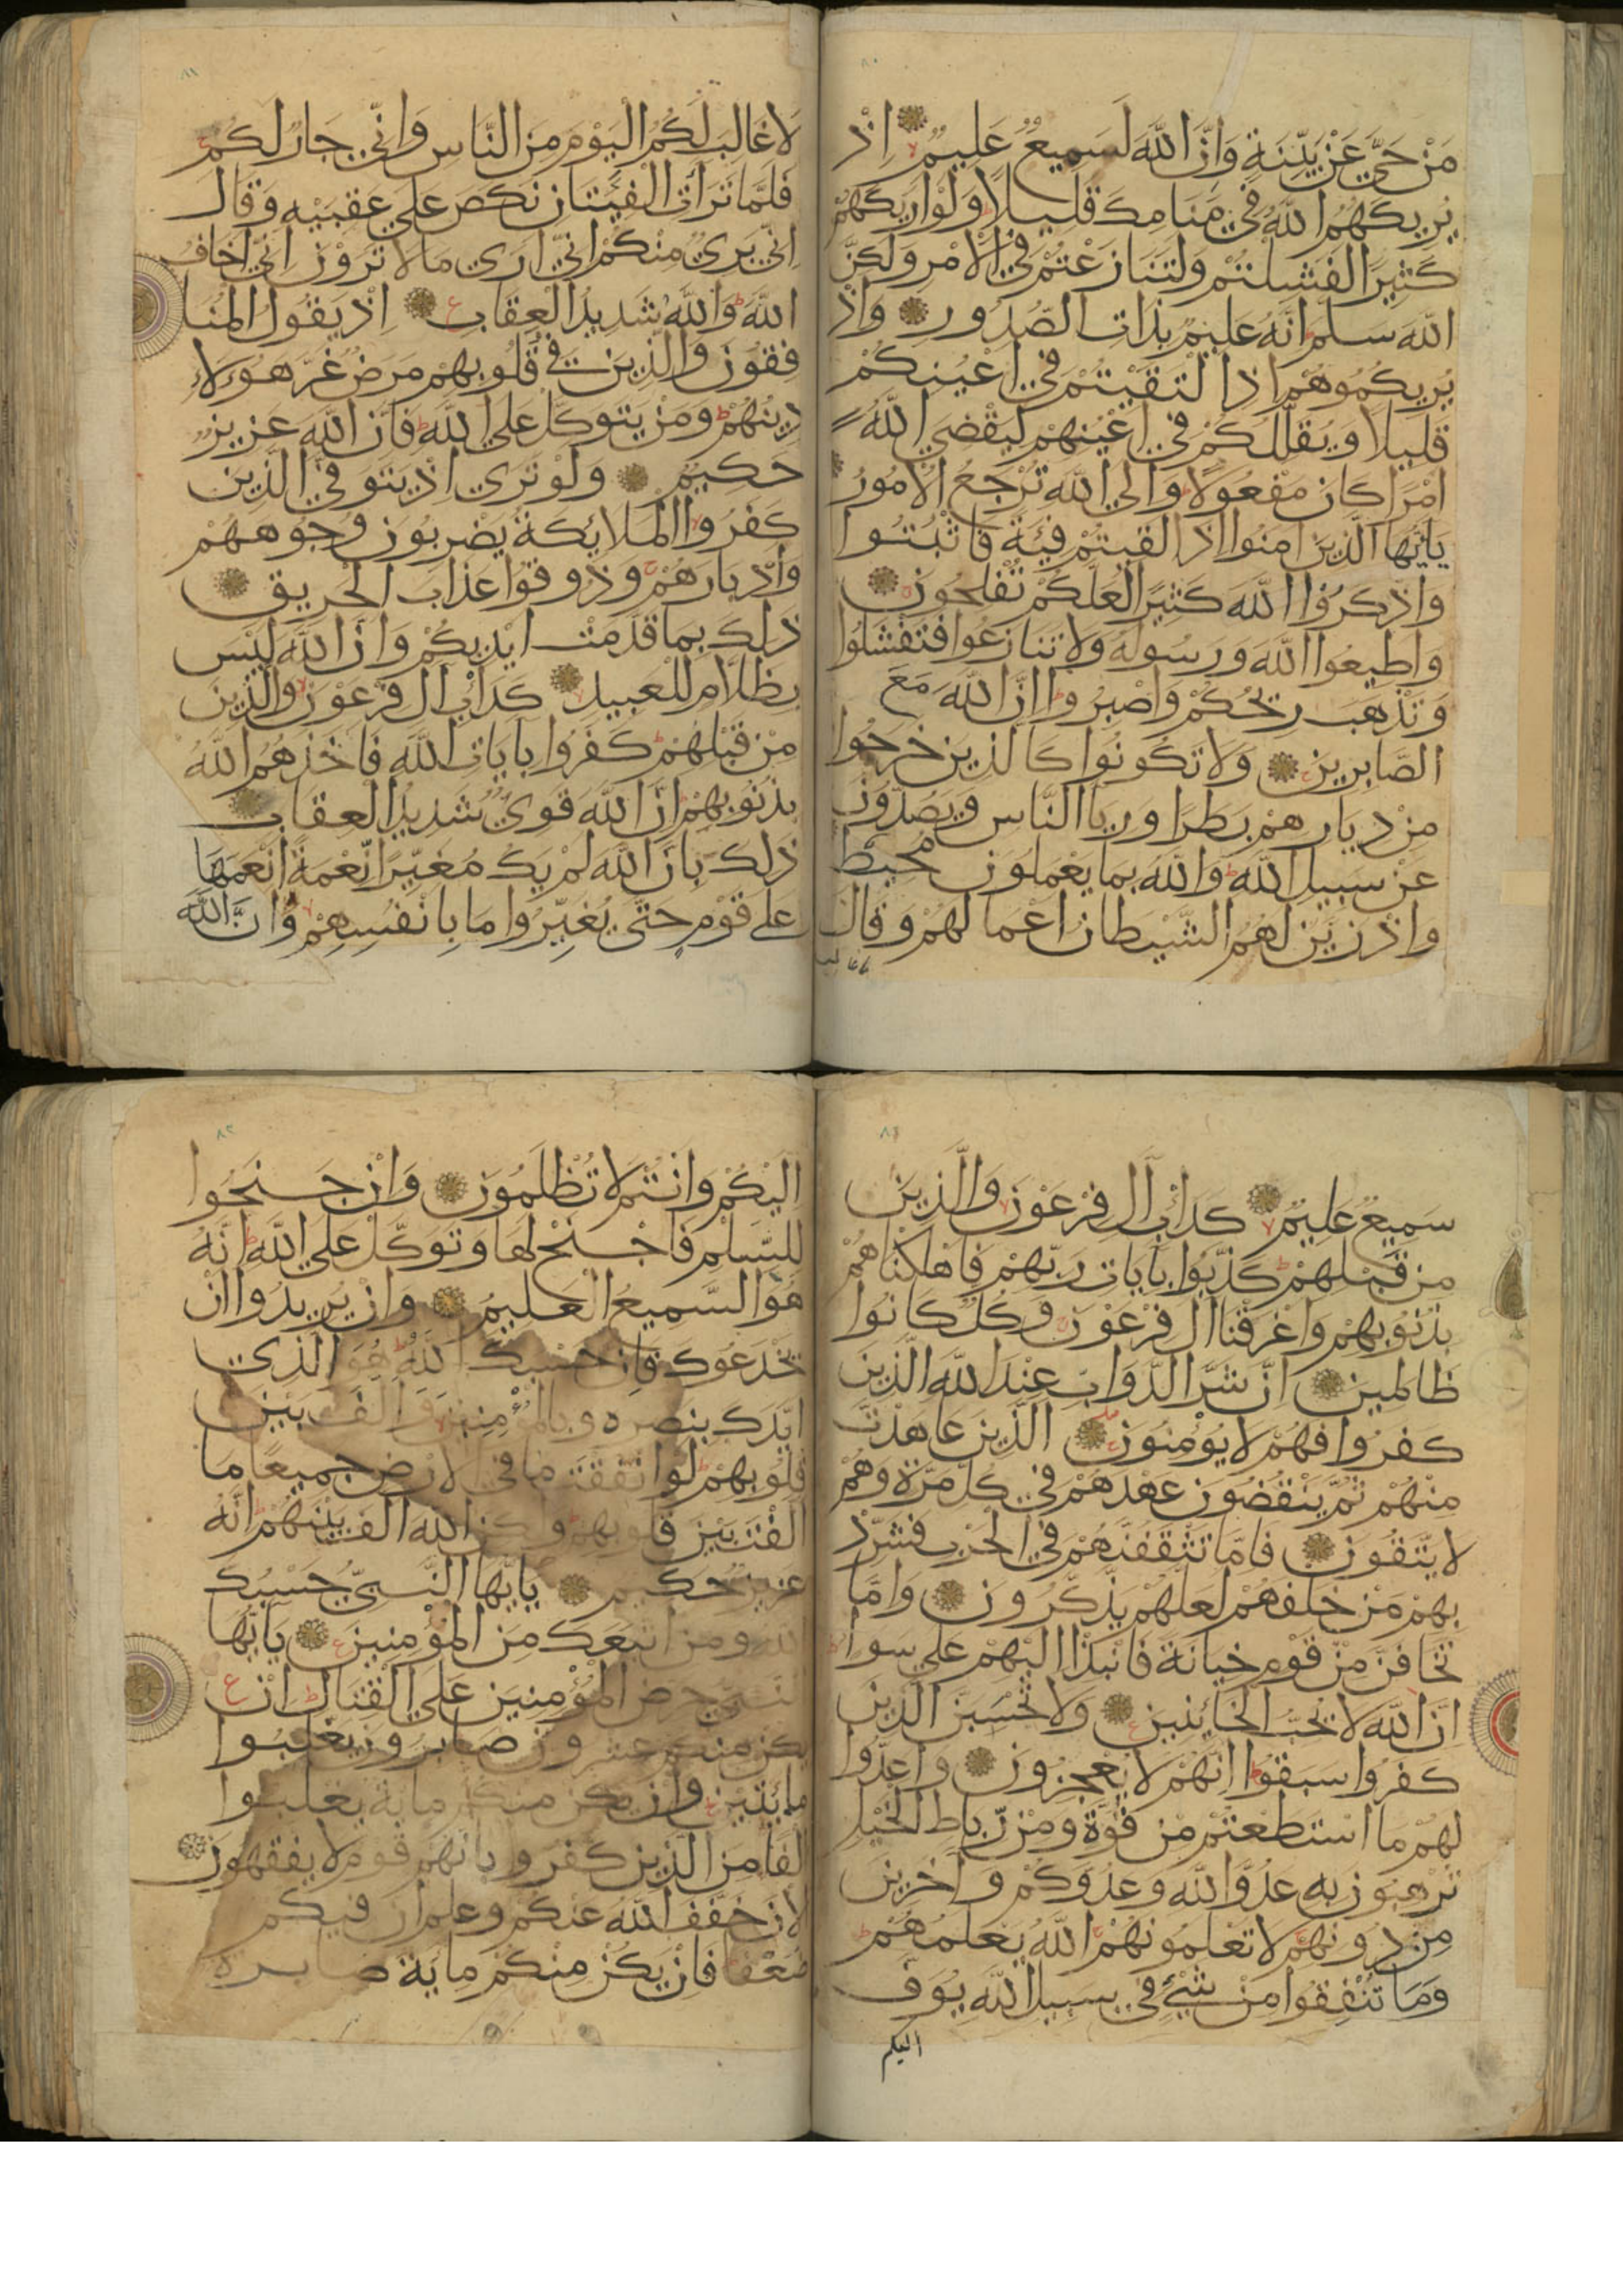 ٨٠
مَنْ حَيَّ عَنْ بَيِّنَةٍ وَاِنَّ اللّٰهَ لَسَمِيعٌ عَلِيمٌ اِذْ
يُرِيكَهُمُ اللّٰهُ فِي مَنَامِكَ قَلِيلًا وَلَوْ اَرٰيكَهُمْ
كَثِيرًا لَفَشِلْتُمْ وَلَتَنَازَعْتُمْ فِي الْاَمْرِ وَلٰكِنَّ
اللّٰهَ سَلَّمَ اِنَّهُ عَلِيمٌ بِذَاتِ الصُّدُورِ وَاِذْ
يُرِيكُمُوهُمْ اِذِ الْتَقَيْتُمْ فِي اَعْيُنِكُمْ
قَلِيلًا وَيُقَلِّلُكُمْ فِي اَعْيُنِهِمْ لِيَقْضِيَ اللّٰهُ
اَمْرًا كَانَ مَفْعُولًا وَاِلَي اللّٰهِ تُرْجَعُ الْاُمُورُ
يَااَيُّهَا الَّذِينَ اٰمَنُوا اِذَا لَقِيتُمْ فِئَةً فَاثْبُتُوا
وَاذْكُرُوا اللّٰهَ كَثِيرًا لَعَلَّكُمْ تُفْلِحُونَ
وَاَطِيعُوا اللّٰهَ وَرَسُولَهُ وَلَا تَنَازَعُوا فَتَفْشَلُوا
وَتَذْهَبَ رِيحُكُمْ وَاصْبِرُوا اِنَّ اللّٰهَ مَعَ
الصَّابِرِينَ وَلَا تَكُونُوا كَالَّذِينَ خَرَجُوا
مِنْ دِيَارِهِمْ بَطَرًا وَرِيَا النَّاسِ وَيَصُدُّونَ
عَنْ سَبِيلِ اللّٰهِ وَاللّٰهُ بِمَا يَعْمَلُونَ مُحِيطٌ
وَاِذْ زَيَّنَ لَهُمُ الشَّيْطَانُ اَعْمَالَهُمْ وَقَالَ
٨١
لَا غَالِبَ لَكُمُ الْيَوْمَ مِنَ النَّاسِ وَاِنِّي جَارٌ لَكُمْ
فَلَمَّا تَرَاَتِ الْفِئَتَانِ نَكَصَ عَلَي عَقِبَيْهِ وَقَالَ
اِنِّي بَرِيٌ مِنْكُمْ اِنِّي اَرَي مَا لَا تَرَوْنَ اِنِّي اَخَافُ
اللّٰهَ وَاللّٰهُ شَدِيدُ الْعِقَابِ اِذْ يَقُولُ الْمُنَا
فِقُونَ وَالَّذِينَ فِي قُلُوبِهِمْ مَرَضٌ غَرَّ هٰوُلَاءِ
دِينُهُمْ وَمَنْ يَتَوَكَّلْ عَلَي اللّٰهِ فَاِنَّ اللّٰهَ عَزِيزٌ
حَكِيمٌ وَلَوْ تَرَي اِذْ يَتَوَفَّي الَّذِينَ
كَفَرُوا الْمَلَايِكَةُ يَضْرِبُونَ وُجُوهَهُمْ
وَاَدْبَارَهُمْ وَذُوقُوا عَذَابَ الْحَرِيقِ
ذٰلِكَ بِمَا قَدَّمَتْ اَيْدِيكُمْ وَاَنَّ اللّٰهَ لَيْسَ
بِظَلَّامٍ لِلْعَبِيدِ كَدَاْبِ اٰلِ فِرْعَوْنَ وَالَّذِينَ
مِنْ قَبْلِهِمْ كَفَرُوا بِاٰيَاتِ اللّٰهِ فَاَخَذَهُمُ اللّٰهُ
بِذُنُوبِهِمْ اِنَّ اللّٰهَ قَوِيٌّ شَدِيدُ الْعِقَابِ
ذٰلِكَ بِاَنَّ اللّٰهَ لَمْ يَكُ مُغَيِّرًا نِّعْمَةً اَنْعَمَهَا
عَلَي قَوْمٍ حَتَّي يُغَيِّرُوا مَا بِاَنْفُسِهِمْ وَاَنَّ اللّٰهَ
سَمِيعٌ عَلِيمٌ كَدَاْبِ اٰلِ فِرْعَوْنَ وَالَّذِينَ
مِنْ قَبْلِهِمْ كَذَّبُوا بِاٰيَاتِ رَبِّهِمْ فَاَهْلَكْنَاهُمْ
بِذُنُوبِهِمْ وَاَغْرَقْنَا اٰلَ فِرْعَوْنَ وَكُلٌّ كَانُوا
ظَالِمِينَ اِنَّ شَرَّ الدَّوَابِّ عِنْدَ اللّٰهِ الَّذِينَ
كَفَرُوا فَهُمْ لَا يُوْمِنُونَ الَّذِينَ عَاهَدْتَ
مِنْهُمْ ثُمَّ يَنْقُضُونَ عَهْدَهُمْ فِي كُلِّ مَرَّةٍ وَهُمْ
لَا يَتَّقُونَ فَاِمَّا تَثْقَفَنَّهُمْ فِي الْحَرْبِ فَشَرِّدْ
بِهِمْ مَنْ خَلْفَهُمْ لَعَلَّهُمْ يَذَّكَّرُونَ وَاِمَّا
تَخَافَنَّ مِنْ قَوْمٍ خِيَانَةً فَانْبِذْ اِلَيْهِمْ عَلَي سَوَاءٍ
اِنَّ اللّٰهَ لَا يُحِبُّ الْخَائِنِينَ وَلَا تَحْسَبَنَّ الَّذِينَ
كَفَرُوا سَبَقُوا اِنَّهُمْ لَا يُعْجِزُونَ وَاَعِدُّوا
لَهُمْ مَا اسْتَطَعْتُمْ مِنْ قُوَّةٍ وَمِنْ رِّبَاطِ الْخَيْلِ
تُرْهِبُونَ بِهِ عَدُوَّ اللّٰهِ وَعَدُوَّكُمْ وَاٰخَرِينَ
مِنْ دُونِهِمْ لَا تَعْلَمُونَهُمْ اللّٰهُ يَعْلَمُهُمْ
وَمَا تُنْفِقُوا مِنْ شَيْءٍ فِي سَبِيلِ اللّٰهِ يُوَفَّ
اليكم
٨٢
اِلَيْكُمْ وَاَنْتُمْ لَا تُظْلَمُونَ وَاِنْ جَنَحُوا
لِلسَّلْمِ فَاجْنَحْ لَهَا وَتَوَكَّلْ عَلَي اللّٰهِ اِنَّهُ
هُوَ السَّمِيعُ الْعَلِيمُ وَاِنْ يُرِيدُوا اَنْ
يَخْدَعُوكَ فَاِنَّ حَسْبَكَ اللّٰهُ هُوَ الَّذِي
اَيَّدَكَ بِنَصْرِهِ وَبِالْمُوْمِنِينَ وَاَلَّفَ بَيْنَ
قُلُوبِهِمْ لَوْ اَنْفَقْتَ مَا فِي الْاَرْضِ جَمِيعًا مَا
اَلَّفْتَ بَيْنَ قُلُوبِهِمْ وَلٰكِنَّ اللّٰهَ اَلَّفَ بَيْنَهُمْ اِنَّهُ
عَزِيزٌ حَكِيمٌ يَااَيُّهَا النَّبِيُّ حَسْبُكَ
اللّٰهُ وَمَنِ اتَّبَعَكَ مِنَ الْمُوْمِنِينَ يَااَيُّهَا
النَّبِيُّ حَرِّضِ الْمُوْمِنِينَ عَلَي الْقِتَالِ اِنْ
يَكُنْ مِنْكُمْ عِشْرُونَ صَابِرُونَ يَغْلِبُوا
مِائَتَيْنِ وَاِنْ يَكُنْ مِنْكُمْ مِايَةٌ يَغْلِبُوا
اَلْفًا مِنَ الَّذِينَ كَفَرُوا بِاَنَّهُمْ قَوْمٌ لَا يَفْقَهُونَ
اَلْاٰنَ خَفَّفَ اللّٰهُ عَنْكُمْ وَعَلِمَ اَنَّ فِيكُمْ
ضَعْفًا فَاِنْ يَكُنْ مِنْكُمْ مِايَةٌ صَابِرَةٌ